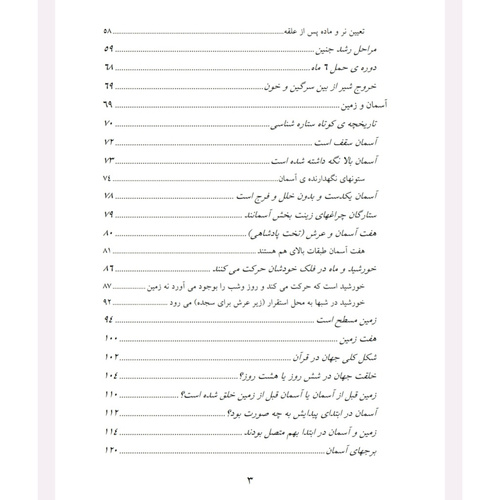 تعیین نر و ماده پس از علقه ........ ۵۸
مراحل رشد جنین ........ ۵۹
دوره ی حمل ۶ ماه ........ ۶۸
خروج شیر از بین سرگین و خون ........ ۶۹
آسمان و زمین ........ ۶۹
تاریخچه ی کوتاه ستاره شناسی ........ ۷۰
آسمان سقف است ........ ۷۲
آسمان بالا نگه داشته شده است ........ ۷۳
ستونهای نگهدارنده ی آسمان ........ ۷۴
آسمان یکدست و بدون خلل و فرج است ........ ۷۸
ستارگان چراغهای زینت بخش آسمانند ........ ۷۹
هفت آسمان و عرش (تخت پادشاهی) ........ ۸۰
هفت آسمان طبقات بالای هم هستند ........ ۸۱
خورشید و ماه در فلک خودشان حرکت می کنند ........ ۸۶
خورشید است که حرکت می کند و روز وشب را بوجود می آورد نه زمین ........ ۸۷
خورشید در شبها به محل استقرار (زیر عرش برای سجده) می رود ........ ۹۲
زمین مسطح است ........ ۹۴
هفت زمین ........ ۱۰۰
شکل کلی جهان در قرآن ........ ۱۰۲
خلقت جهان در شش روز یا هشت روز؟ ........ ۱۰۴
زمین قبل از آسمان یا آسمان قبل از زمین خلق شده است؟ ........ ۱۱۰
آسمان در ابتدای پیدایش به چه صورت بود؟ ........ ۱۱۲
زمین و آسمان در ابتدا بهم متصل بودند ........ ۱۱۴
برجهای آسمان ........ ۱۲۰
۳